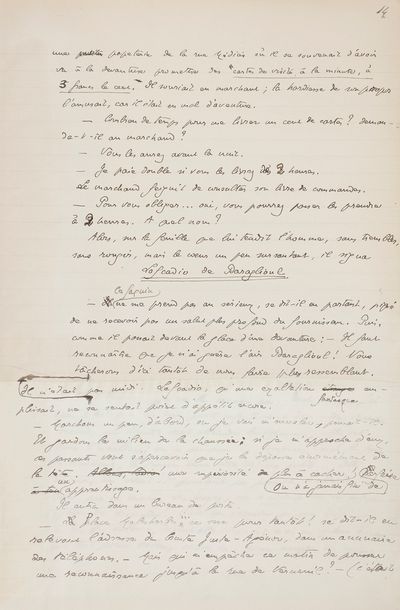 14
une petite papeterie de la rue Médicis où il se souvenait d'avoir
vu à la devanture promettre des "cartes de visite à la minute, à
3 francs le cent. Il souriait en marchant; la hardiesse de son propos
l'amusait, car il était en mal d'aventure.
— Combien de temps pour me livrer un cent de cartes? deman-
da-t-il au marchand?
— Vous les aurez avant la nuit.
— Je paie double si vous les livrez dès 2 heures.
Le marchand feignit de consulter son livre de commandes.
— Pour vous obliger... oui, vous pourrez passer les prendre
à 2 heures. A quel nom?
Alors, sur la feuille que lui tendit l'homme, sans trembler,
sans rougir, mais le cœur un peu sursautant, il signa
Lafcadio de Baraglioul
Ce faquin
— ne me prend pas au sérieux, se dit-il en partant, piqué
de ne recevoir pas un salut plus profond du fournisseur. Puis,
comme il passait devant la glace d'une devanture: — Il faut
reconnaître que je n'ai guère l'air Baraglioul! Nous
tâcherons d'ici tantôt de nous faire plus ressemblant.
Il n'était pas midi. Lafcadio, qu'une exaltation em-
fantasque
plissait, ne se sentait point d'appétit encore.
— Marchons un peu, d'abord, ou je vais m'envoler, pensait-il.
Et gardons le milieu de la chaussée; si je m'approche d'eux,
ces passants vont s'apercevoir que je les dépasse énormément de
la tête. une supériorité de plus à cacher.
On n'a jamais fini de
un apprentissage.
Il entra dans un bureau de poste.
— Place Malesherbes... ce sera pour tantôt! se dit-il en
relevant l'adresse du Comte Juste-Agénor, dans un annuaire
des téléphones. — Mais qui m'empêche ce matin de pousser
une reconnaissance jusqu'à la rue de Verneuil? — (c'était